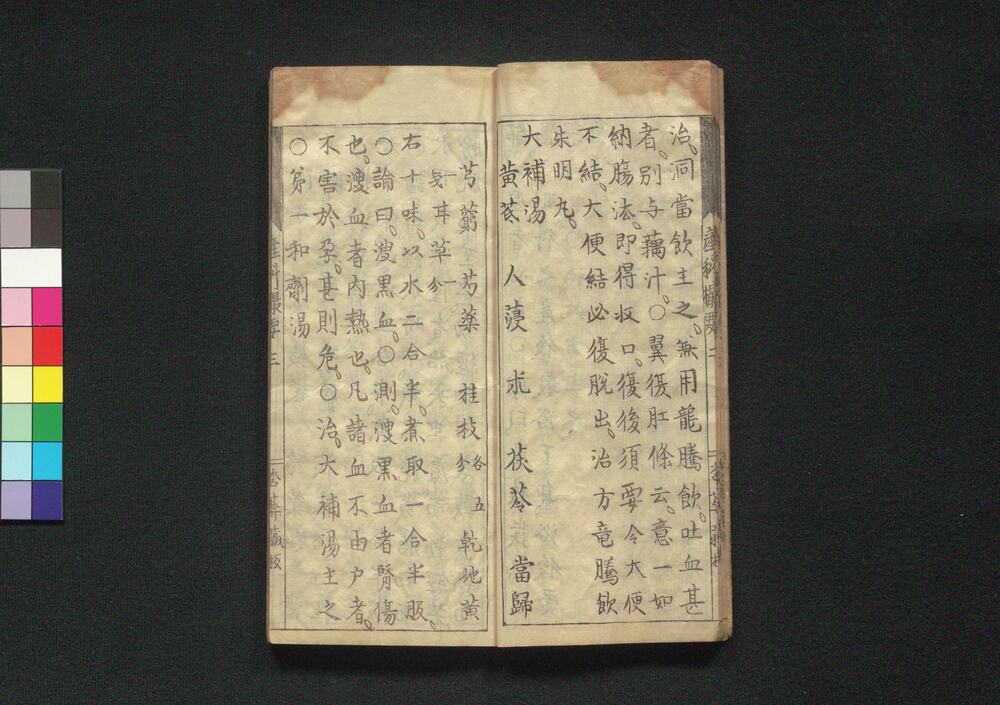 治洞當飲主之無用龍騰飲吐血甚
者別与藕汁〇翼復肛條云意一如
納腸法即得収口復後須要令大便
不結大便結必復脱出治方竜騰飲
朱明丸
大補湯
黄芪 人薓 朮 茯苓 當歸
芎藭 芍薬 桂枝各五分 乾地黄
甘草一分
右十味以水二合半煮取一合半服
〇論曰溲黒血〇測溲黒血者腎傷
也溲血者内熱也凡諸血不由戸者
不害於孕甚則危〇治大補湯主之
〇第一和劑湯
産科